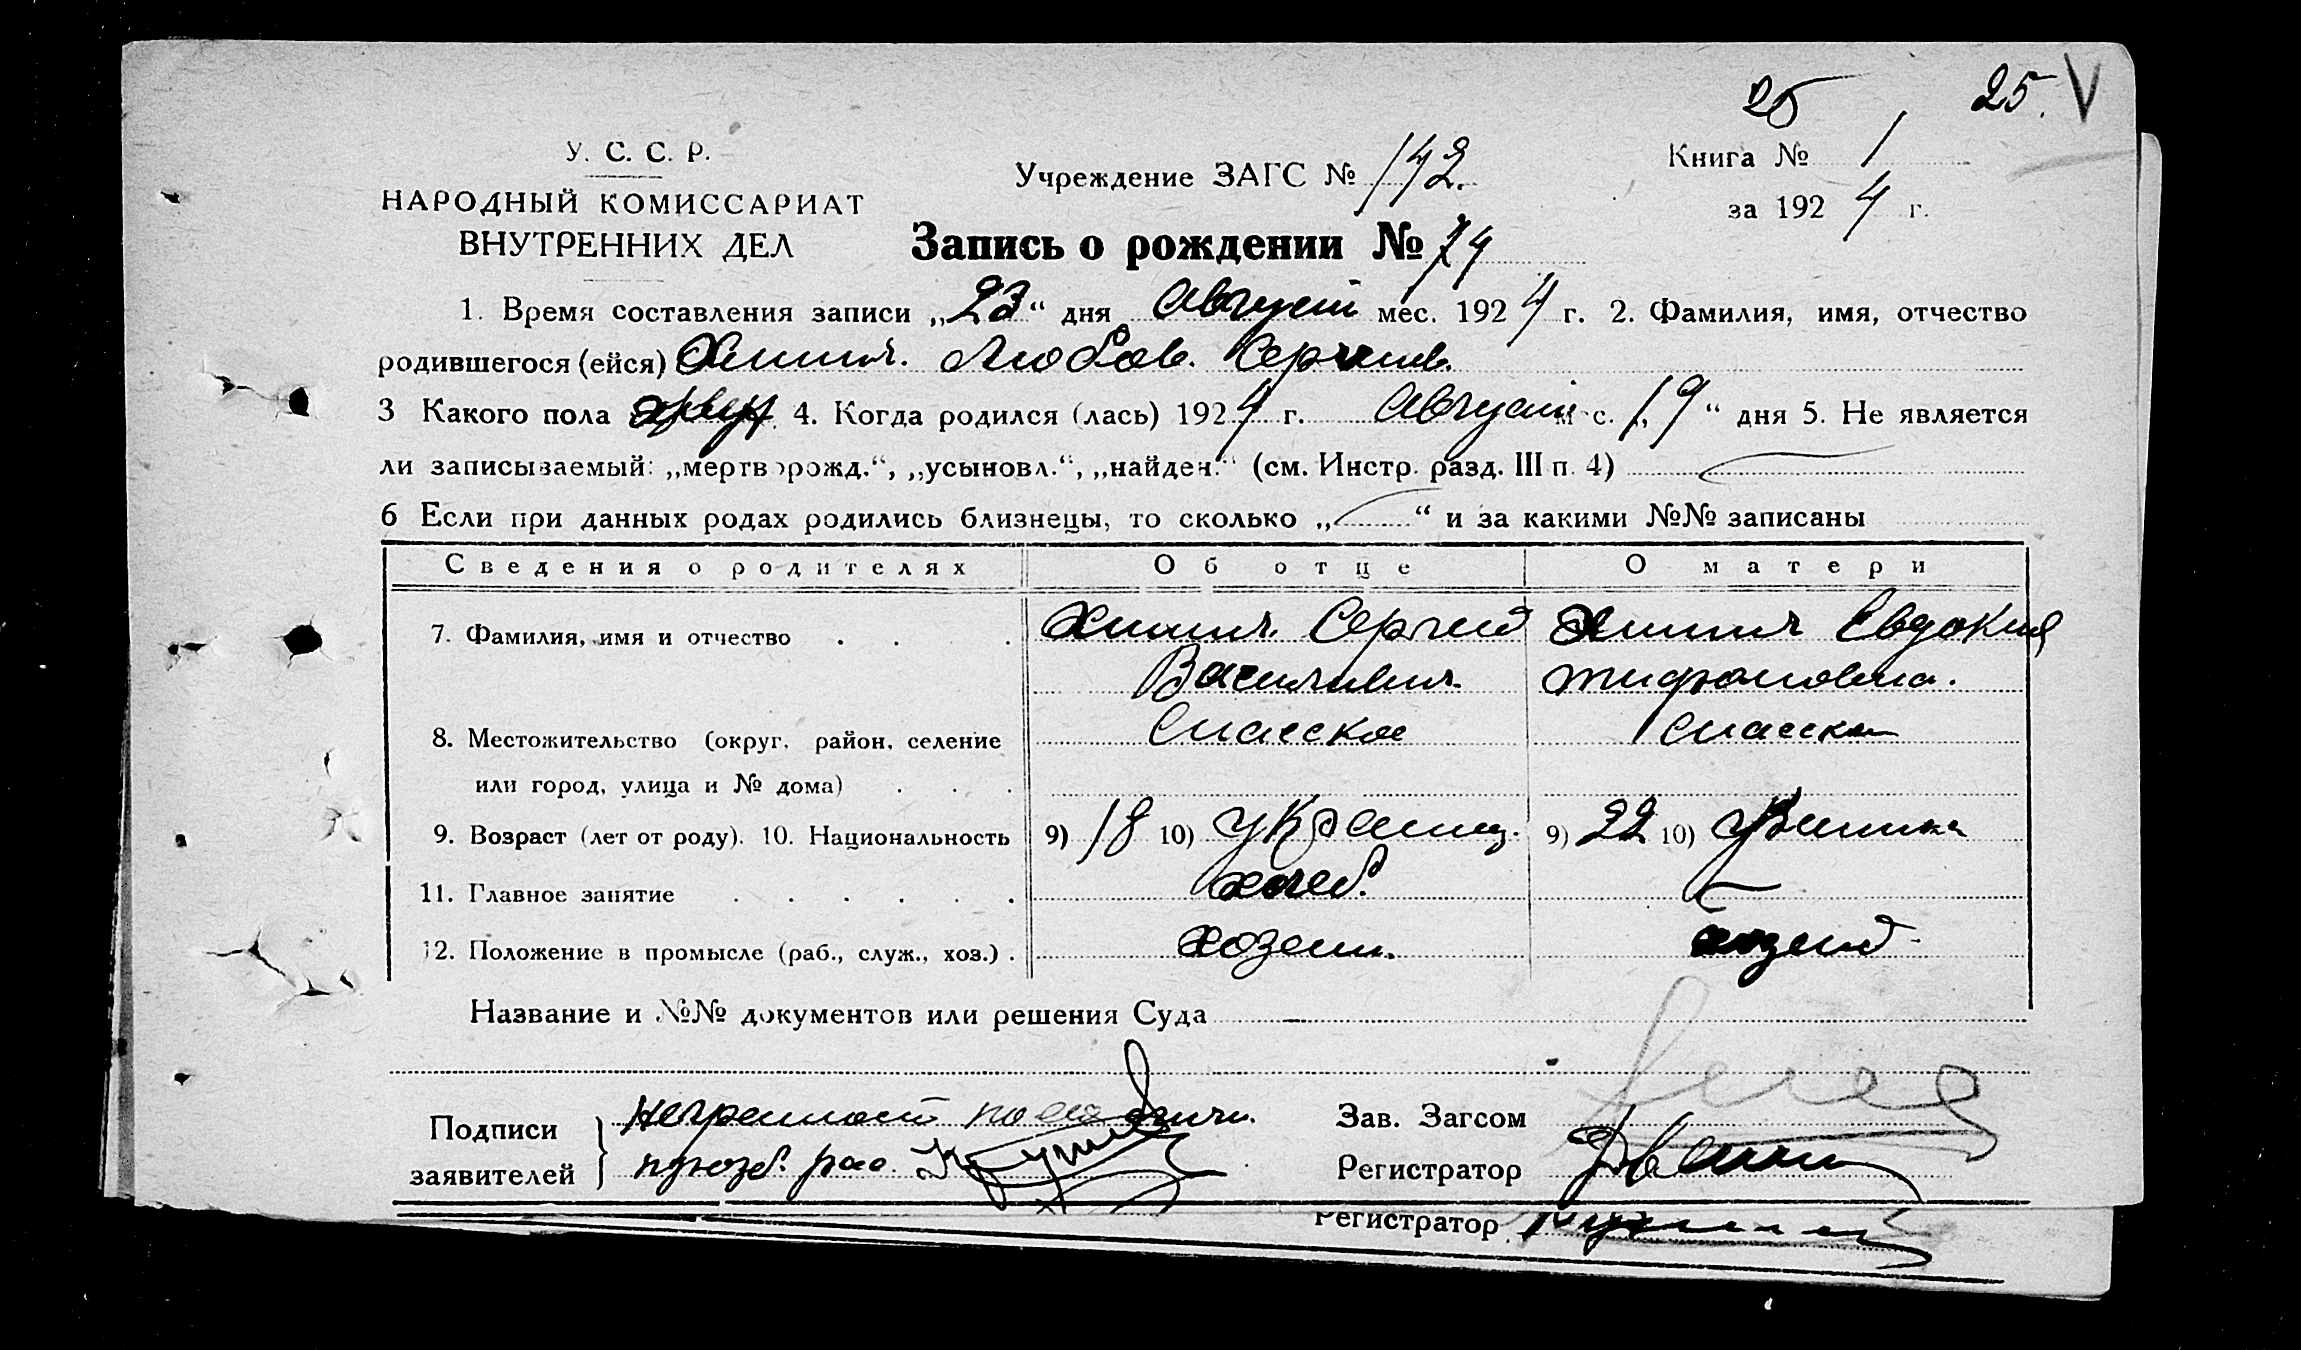 25 25. V
У. С. С. Р.
НАРОДНЫЙ КОМИССАРИАТ
ВНУТРЕННИХ ДЕЛ
Учреждение ЗАГС № 142.
Книга № 1
за 1924 г.
Запись о рождении № 74
1. Время составления записи „23“ дня Август мес. 1924 г. 2. Фамилия, имя, отчество
родившегося (ейся) Любов. Сергеев.
3 Какого пола 4. Когда родился (лась) 1924 г. Август м-с. „19“ дня 5. Не является
ли записываемый: „мертворожд.“, „усыновл.“, „найден.“ (см. Инстр. разд. III п. 4)
6 Если при данных родах родились близнецы, то сколько „ “ и за какими №№ записаны
Сведения о родителях Об отце О матери
7. Фамилия, имя и отчество Сергей Евдокия
Васильевич. Тифоновна.
8. Местожительство (округ, район, селение Спасское Спасское
или город, улица и № дома)
9. Возраст (лет от роду). 10. Национальность 9) 18 10) украинец. 9) 22 10)
11. Главное занятие хлеб.
12. Положение в промысле (раб., служ., хоз.) хозеин.
Название и №№ документов или решения Суда —
Подписи
заявителей
неграмот
просб. рас.
Зав. Загсом
Регистратор
Регистратор